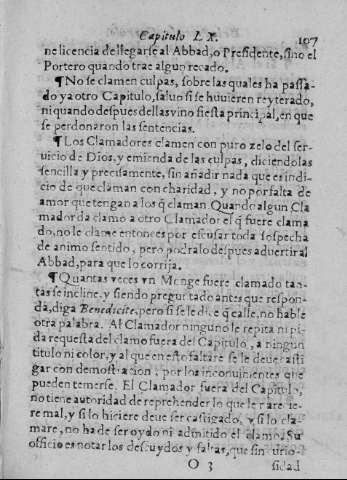 Capitulo LX. 107
ne licencia de llegarse al Abbad, o Presidente, sino el
Portero quando trae algun recado.
¶No se clamen culpas, sobre las quales ha passa-
do ya otro Capitulo, saluo si se huuieren reyterado,
ni quando despues dellas vino fiesta principal, en que
se perdonaron las sentencias.
¶Los Clamadores clamen con puro zelo del ser-
uicio de Dios, y emienda de las culpas, diciendolas
sencilla y precisamente, sin añadir nada que es indi-
cio de que claman con charidad, y no por falta de
amor que tengan a los q̃ claman Quando algun Cla
mador da clamo a otro Clamador el q̃ fuere clama
do, no le clame entonces por escusar toda sospecha
de animo sentido, pero podralo despues aduertir al
Abbad, para que lo corrija.
¶Quantas veces vn Monge fuere clamado tan-
tas se incline, y siendo preguntado antes que respon-
da, diga Benedicite, pero si se le dice q̃ calle, no hable
otra palabra. Al Clamador ninguno le repita ni pi-
da requesta del clamo fuera del Capitulo, a ningun
titulo ni color, y al que en esto faltare se le deue casti
gar con demostracion, por los inconuinientes que
pueden temerse. El Clamador fuera del Capitulo,
no tiene autoridad de reprehender lo que le pareciere
re mal, y si lo hiciere deue ser castigado, y si lo cla-
mare, no ha de ser oydo ni admitido el clamo. Su
officio es notar los descuydos y faltas, que sin curio-
O 3 sidad